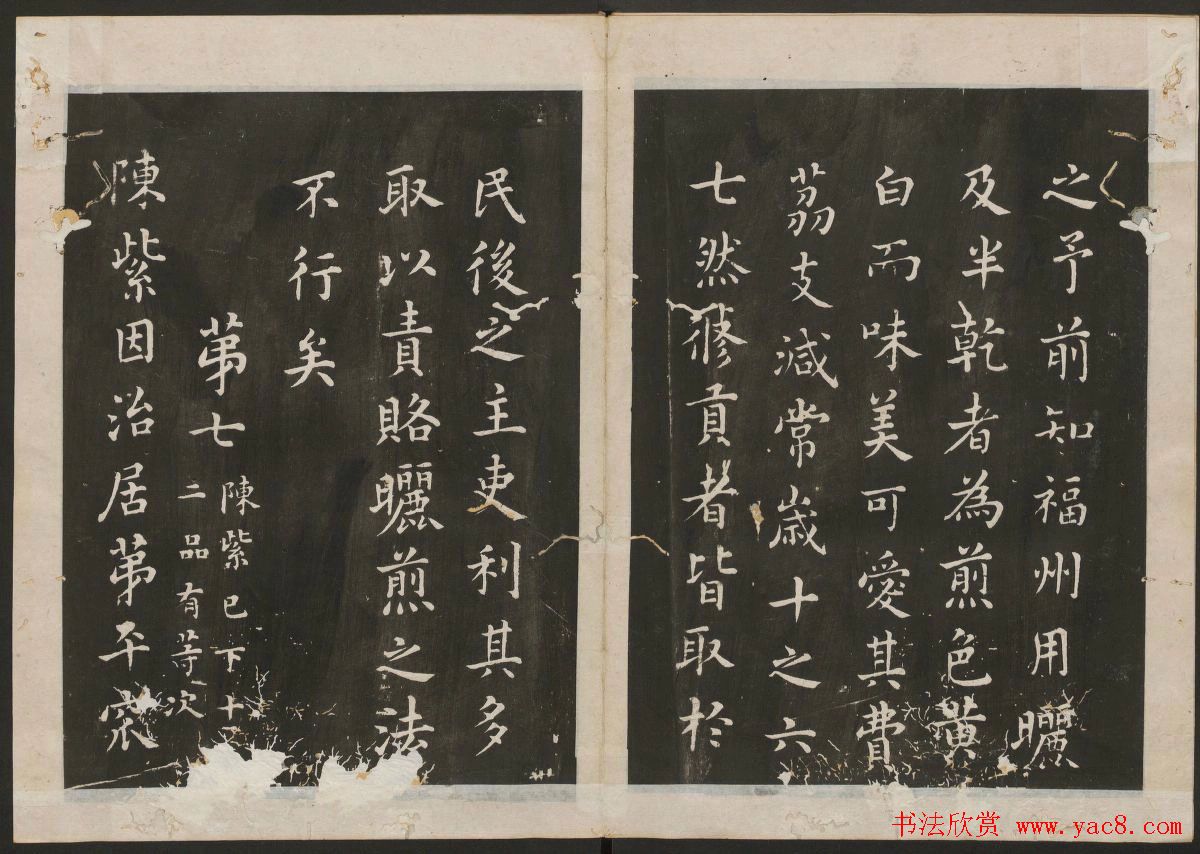 之予前知福州用曬
及半乾者為煎色黃
白而味美可愛其費
荔支減常歲十之六
七然修貢者皆取於
民後之主吏利其多
取以責賂曬煎之法
不行矣
第七
陳紫已下十
二品有等次
陳紫因治居第平窊
书法欣赏 www.yac8.com